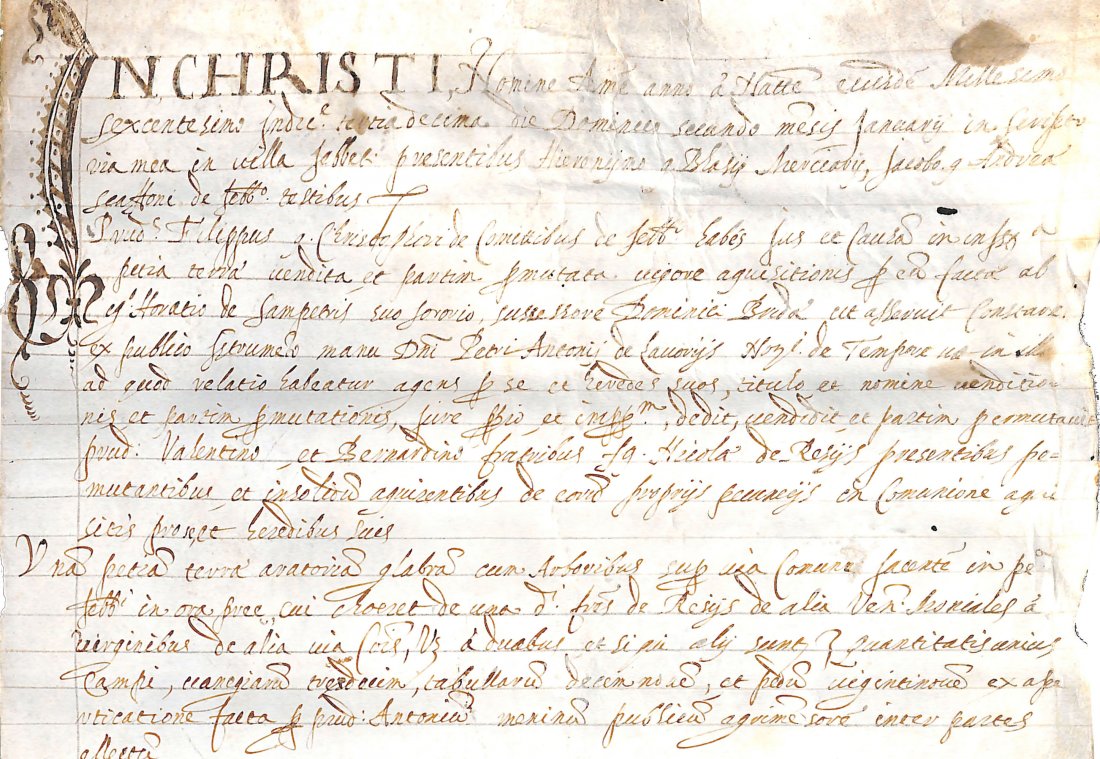 IN CHRISTI, Nomine Ame anno à Natte eiusdē Millesimo
sexcentesimo indic.e tertiadecima die Dominico secundo mēsis Januarij in
ria mea in villa presentibus Hieronijmo q. Blasij Merciarij, Jacobo q. Andreæ
de testibus
Prud.s Filippus q. Christophori de Comitibus de habēs Jus et Causā in
petia terræ vendita et partim pmutata vigore aquisitionis p eū factæ ab
Horatio de Sampetris suo sororio, sucessore Dominici ut asseruit Constare
ex publico manu Dni Petri Antonij de Lavorijs de ut in illo
ad quod relatio habeatur agens p se et heredes suos, titulo et nomine venditio
nis et partim pmutationis, iure ppio et dedit, vendidit et partim permutavit
prud. Valentino et Bernardino fratribus fq. Nicolæ de Resijs presentibus pe
mutantibus et insolidū aquirentibus de eorū proprijs pecunijs in Comunione aqui
sitis pro se, et heredibus suis
Unā petiā terræ aratoriā glabrā cum Arboribus sup via Comune Jacentē in pe
in ora cui choeret de una d.i frēs de Resijs de alia Ven. Moniales à
Virginibus de alia via Cōis, à duabus et si qui alij sunt quantitatis unius
Campi, tresdecim, tabullarū decem novē, et pedū vigintinovē ex a
rticatione facta p prud. Antoniū meninū publicū agrimēsorē inter partes